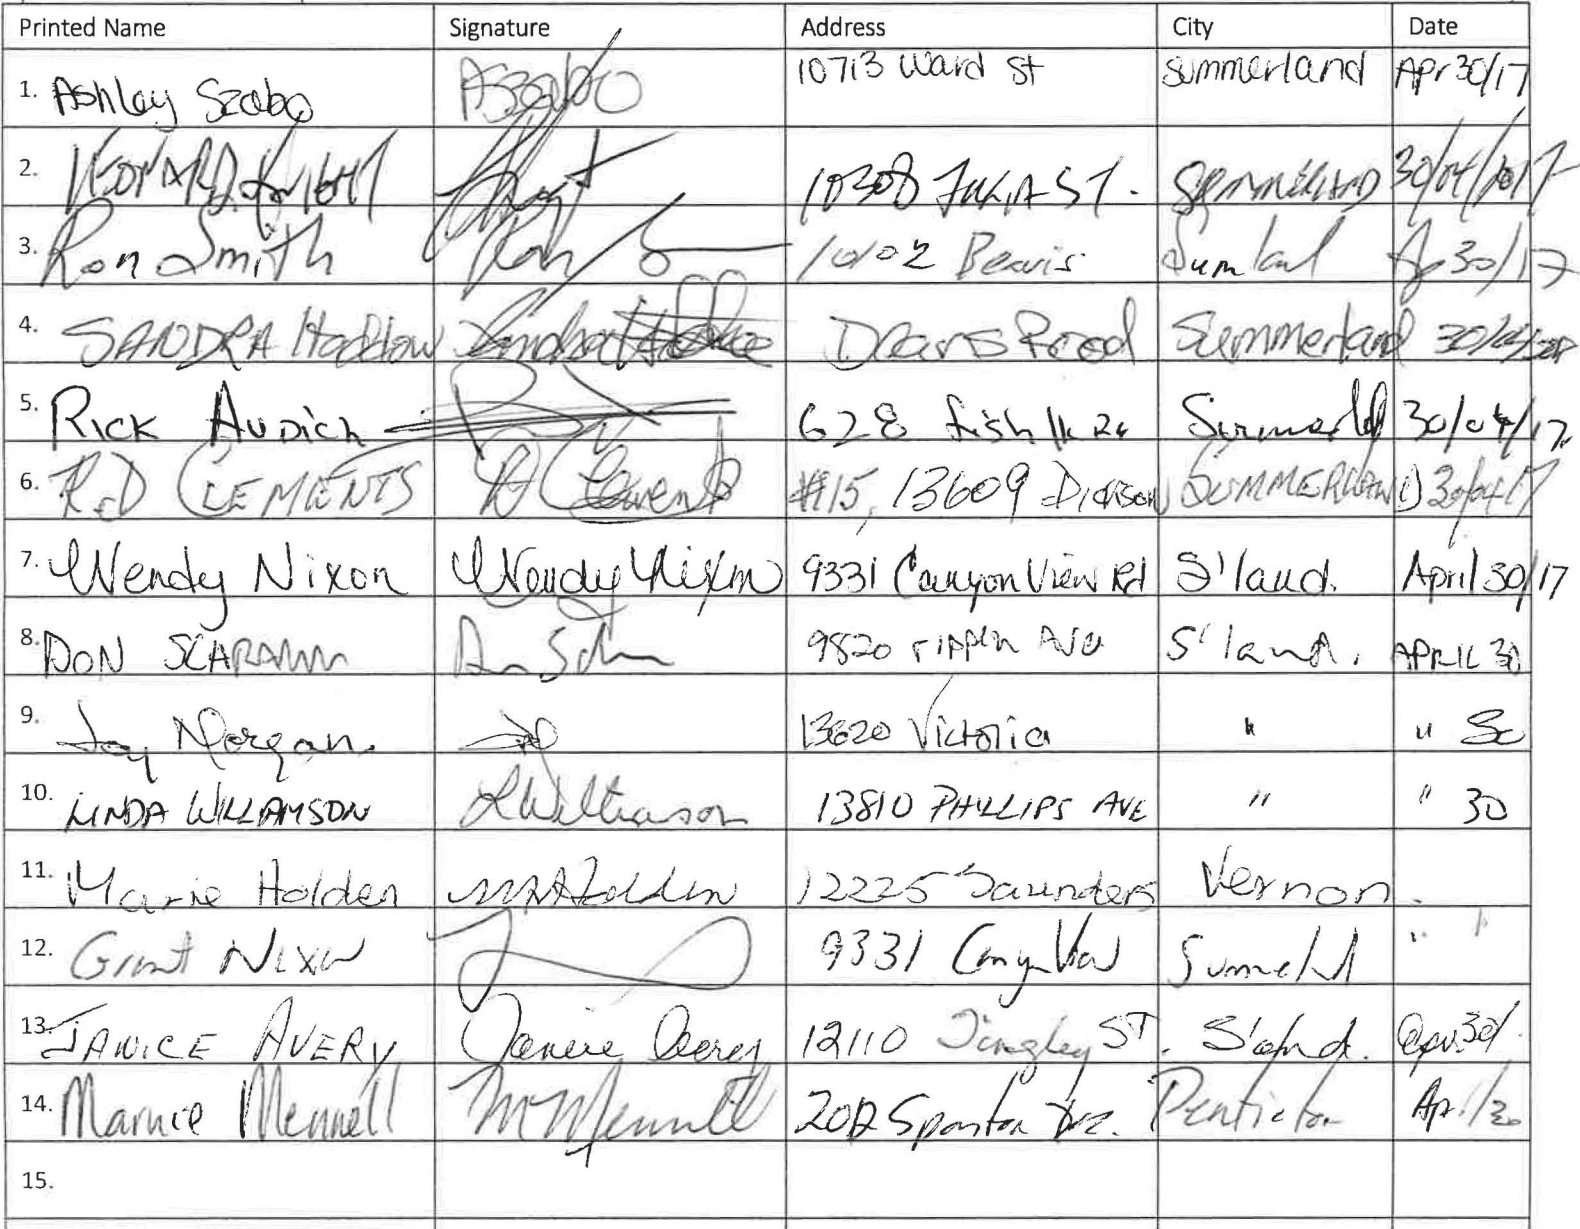 Printed Name Signature Address City Date
1. Ashley Szabo ASzabo 10713 Ward St Summerland Apr 30/17
2. 10308 St. Summerland 30/04/2017
3. Ron Smith Ron 10102 Beavis Sumland Ap 30/17
4. SANDRA Haddow Sandra Haddow Road Summerland 30/04
5. RICK AUDICH 628 30/04/17
6. R.D CLEMENTS RD Clements #15, 13609 DICKSON SUMMERLAND 30/04/17
7. Wendy Nixon Wendy Nixon 9331 Canyon View Rd S'land. April 30/17
8. DON 9820 AVE S'land. APRIL 30
9. Joy Morgan. 13620 Victoria " " 30
10. LINDA WILLIAMSON LWilliamson 13810 PHILLIPS AVE " " 30
11. Marie Holden MAHolden 12225 Saunders Vernon.
12. Grant Nixon 9331 Canyon View " "
13. JANICE AVERY Janice Avery 12110 Tingley ST. S'land. Apr 30/
14. Marnie Mennell M Mennell Penticton Apr/30
15.